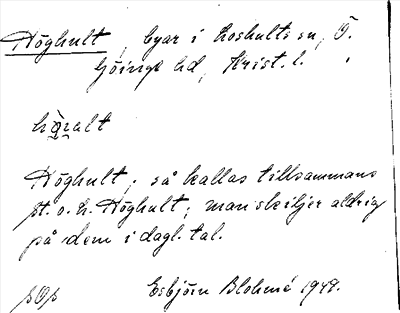 Höghult, byar i Loshults sn, Ö.
Göinge hd, Krist. l.
Höghult; så kallas tillsammans
st. o. l. Höghult; man skiljer aldrig
på dem i dagl. tal.
Esbjörn Blohmé 1949.